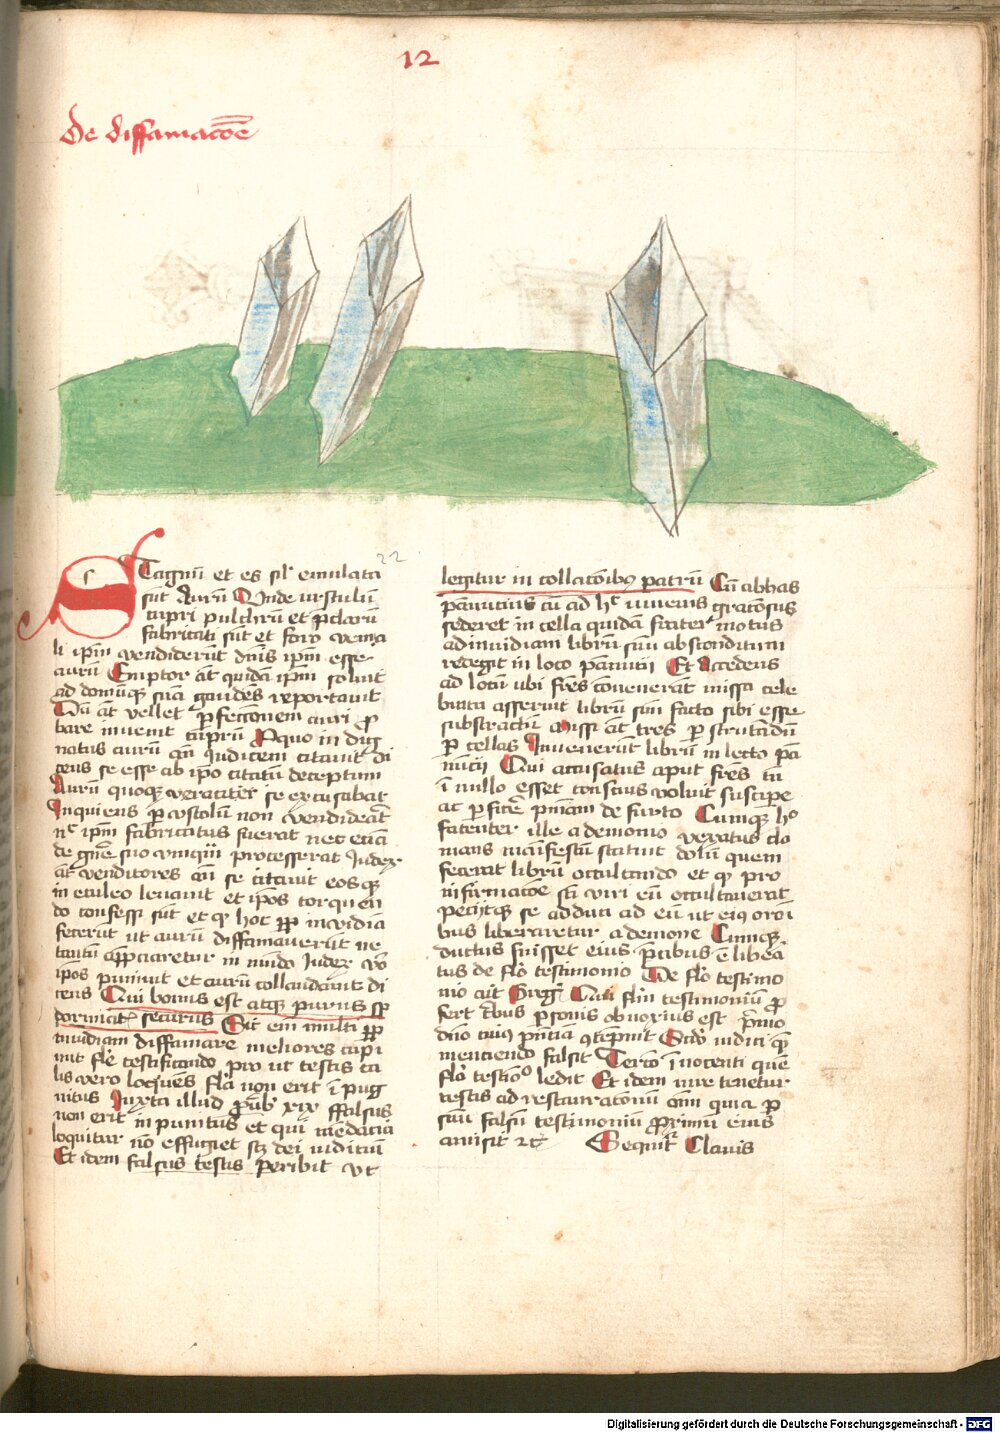 12
De diffamacōe
22
STagnū et es sil' emulata
sūt Aurū Unde urstulū
cupri pulchrū et p̄clarū
fabricati sūt et foro venia
li ip̄m vendiderūt dnīs ip̄m esse
aurū Emptor āt quidā ip̄m soluit
ad domūqꝫ suā gaudēs reportauit
Dū āt vellet ꝑfeccōnem auri ꝓ
bare inuenit cuprū Proquo indig
natus aurū añ Judicem citauit di
cens se esse ab ip̄o citatū deceptum
Aurū quoqꝫ veraciter se excusabat
Inquiens ꝑ custolū non vendideāt
nc̄ ip̄m fabricatus fuerat nec eciā
de gn̄e suo vmqūi processerat Judex
āt venditores añ se citauit eosqꝫ
in eculeo leuauit et ip̄os torquen
do confessi sūt et qꝫ hoc ꝓꝑ inuidiā
fecerūt ut aurū diffamauerūt ne
tantū apprēciaretur in mūdo Judex vō
ip̄os puniuit et aurū collaudauit di
cens Cui bonus est atqꝫ purus sꝑ
dormiat securus Sic eīm multi ꝓꝑ
inuidiam diffamare meliores cupi
unt fl'e testificando pro ut testis ta
lis vero loquēs fl'a non erit ī pug
nitus Juxta illud ꝓub' xix ffalsus
non erit inpunitus et qui mēdacia
loquitur nō effugiet sꝫ dei iudiciū
Et idem falsus testis peribit vt
legitur in collacōibꝫ patrū Cū abbas
pānutius cū ad hc̄ iuuenis gratōsus
sederet in cella quidā frater motus
ad inuidiam librū suū absconditum
retegit in loco pānutii Et Accedens
ad locū ubi frēs cōuenerāt missa cele
brata asseruit librū suū furto sibi esse
substractū Missi āt tres ꝑ scrutādū
ꝑ cellas Inuenerūt librū in lecto pā
nucij Qui accusatus aput frēs cū
ī nullo esset conscius voluit suscipe
ac ꝑficē pn̄iam de furto Cumqꝫ hº
fatenter ille a demonio vexatus cla
mans manifestū statuit dolū quem
fecerat librū occultando et qꝫ pro
infirmacōe sct̄i viri eū occultauerat
pecijtqꝫ se adduci ad eū ut eiꝫ oroī
bus liberaretur a demone Cumqꝫ
ductus fuisset eius p̄cibus ē libea
tus de fl'o testimonio De fl'o testimo
nio aūt Greg' Qui fl'm testimoniū ꝓ
fert tb̄us ꝑsonis obnoxius est p̄imo
dn̄o cuiꝫ pn̄tiā ꝯtepnit Scdō iudici qꝫ
menciendo falsit Tercō īnocenti quē
fl'o testiōº ledit Et idem iure tenetur
testis ad restauracōnū oīm quia ꝑ
suū falsū testimoniū Proximū eius
amisit ꝛc Sequitᷣ Clauis
Digitalisierung gefördert durch die Deutsche Forschungsgemeinschaft - DFG